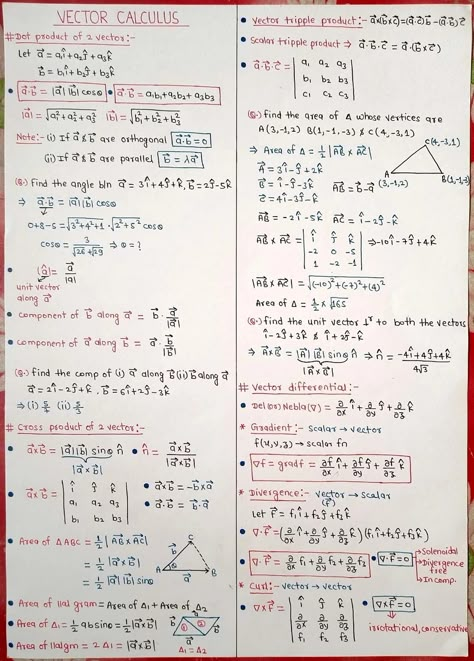 VECTOR CALCULUS
# Dot product of 2 vector:-
Let a⃗ = a₁î + a₂ĵ + a₃k̂
b⃗ = b₁î + b₂ĵ + b₃k̂
• a⃗·b⃗ = |a⃗| |b⃗| cosθ • a⃗·b⃗ = a₁b₁+a₂b₂+a₃b₃
|a⃗| = √a₁²+a₂²+a₃² |b⃗| = √b₁²+b₂²+b₃²
Note:- (i) If a⃗ & b⃗ are orthogonal a⃗·b⃗=0
(ii) If a⃗ & b⃗ are parallel b⃗ = λa⃗
(Q.) Find the angle b/n a⃗ = 3î+4ĵ+k̂, b⃗=2ĵ-5k̂
⇒ a⃗·b⃗ = |a⃗| |b⃗| cosθ
0+8-5 = √3²+4²+1 · √2²+5² cosθ
cosθ = 3/√26√29 ⇒ θ = ?
• (â) = a⃗/|a⃗|
unit vector
along a⃗
• component of b⃗ along a⃗ = b⃗ · a⃗/|a⃗|
• component of a⃗ along b⃗ = a⃗ · b⃗/|b⃗|
(Q.) find the comp of (i) a⃗ along b⃗ (ii) b⃗ along a⃗
a⃗ = 2î-2ĵ+k̂, b⃗ = 6î+2ĵ-3k̂
⇒ (i) 5/7 (ii) 5/3
# Cross product of 2 vector:-
• a⃗×b⃗ = |a⃗||b⃗| sinθ n̂ • n̂ = a⃗×b⃗/|a⃗×b⃗|
|a⃗×b⃗|
• a⃗×b⃗ = | î ĵ k̂ | • a⃗×b⃗ = -b⃗×a⃗
| a₁ a₂ a₃ | • a⃗·b⃗ = b⃗·a⃗
| b₁ b₂ b₃ |
• Area of ΔABC = 1/2 |AB⃗ × AC⃗|
= 1/2 |a⃗×b⃗|
= 1/2 |a⃗| |b⃗| sinθ
A B C a⃗ b⃗ θ
• Area of ||al gram = Area of Δ₁ + Area of Δ₂
• Area of Δ₁ = 1/2 ab sinθ = 1/2 |a⃗×b⃗|
• Area of ||algm = 2 Δ1 = |a⃗×b⃗|
b⃗ ① ② b⃗ a⃗
Δ₁ = Δ₂
• Vector tripple product:- a⃗×(b⃗×c⃗)=(a⃗·c⃗)b⃗-(a⃗·b⃗)c⃗
• Scalar tripple product ⇒ a⃗·b⃗·c⃗ = a⃗·(b⃗×c⃗)
• a⃗·b⃗·c⃗ = | a₁ a₂ a₃ |
| b₁ b₂ b₃ |
| c₁ c₂ c₃ |
(Q.) find the area of Δ whose vertices are
A(3,-1,2) B(1,-1,-3) & C(4,-3,1)
⇒ Area of Δ = 1/2 |AB⃗ × AC⃗|
C(4,-3,1)
A⃗ = 3î-ĵ+2k̂
B⃗ = î-ĵ-3k̂ AB⃗ = b⃗-a⃗
C⃗ = 4î-3ĵ-k̂
A (3,-1,2) B(1,-1,-3)
AB⃗ = -2î-5k̂ AC⃗ = î-2ĵ-k̂
AB⃗ × AC⃗ = | î ĵ k̂ | ⇒ -10î-7ĵ+4k̂
| -2 0 -5 |
| 1 -2 -1 |
|AB⃗ × AC⃗| = √(-10)²+(-7)²+(4)²
Area of Δ = 1/2 × √165
(Q.) find the unit vector ⊥r to both the vectors
î-2ĵ+3k̂ & î+2ĵ-k̂
⇒ A⃗×B⃗ = |A⃗| |B⃗| sinθ n̂ ⇒ n̂ = -4î+4ĵ+4k̂/4√3
|A⃗×B⃗|
# Vector differential:-
• Del (or) Nebla (∇) = ∂/∂x î + ∂/∂y ĵ + ∂/∂z k̂
* Gradient:- scalar → vector
f(x,y,z) → scalar fn
• ∇f = gradf = ∂f/∂x î + ∂f/∂y ĵ + ∂f/∂z k̂
* Divergence:- vector → scalar
(f⃗)
Let F⃗ = f₁î+f₂ĵ+f₃k̂
• ∇·F⃗ = (∂/∂x î + ∂/∂y ĵ + ∂/∂z k̂)(f₁î+f₂ĵ+f₃k̂)
• ∇·F⃗ = ∂/∂x f₁ + ∂/∂y f₂ + ∂/∂z f₃ • ∇·F⃗=0 → Solenoidal
→ Divergence free
→ Incomp.
* Curl:- vector → vector
• ∇×F⃗ = | î ĵ k̂ | • ∇×F⃗=0
| ∂/∂x ∂/∂y ∂/∂z |
| f₁ f₂ f₃ |
irriotational, conservative